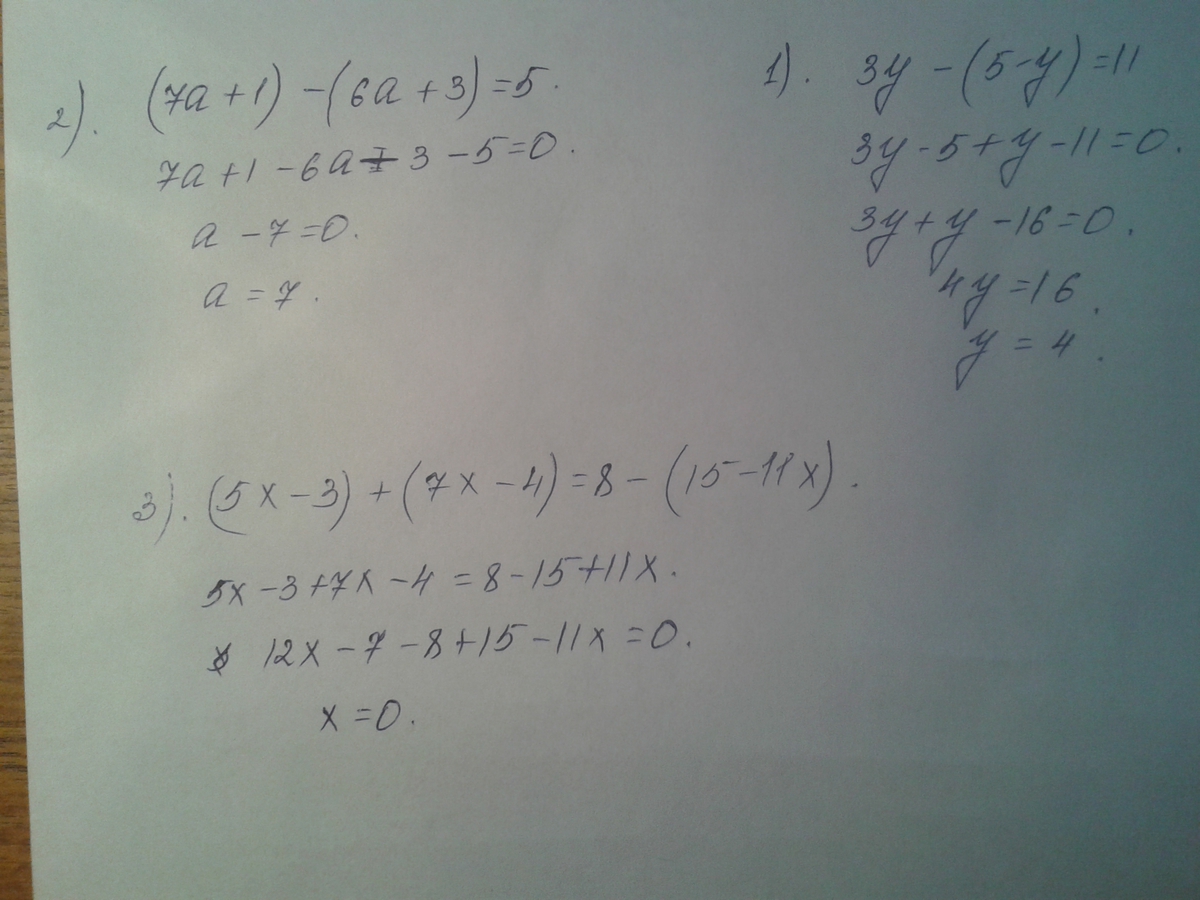 2). (7a + 1) - (6a + 3) = 5.
7a + 1 - 6a - 3 - 5 = 0.
a - 7 = 0.
a = 7.
1). 3y - (5 - y) = 11
3y - 5 + y - 11 = 0.
3y + y - 16 = 0.
4y = 16.
y = 4.
3). (5x - 3) + (7x - 4) = 8 - (15 - 11x).
5x - 3 + 7x - 4 = 8 - 15 + 11x.
12x - 7 - 8 + 15 - 11x = 0.
x = 0.